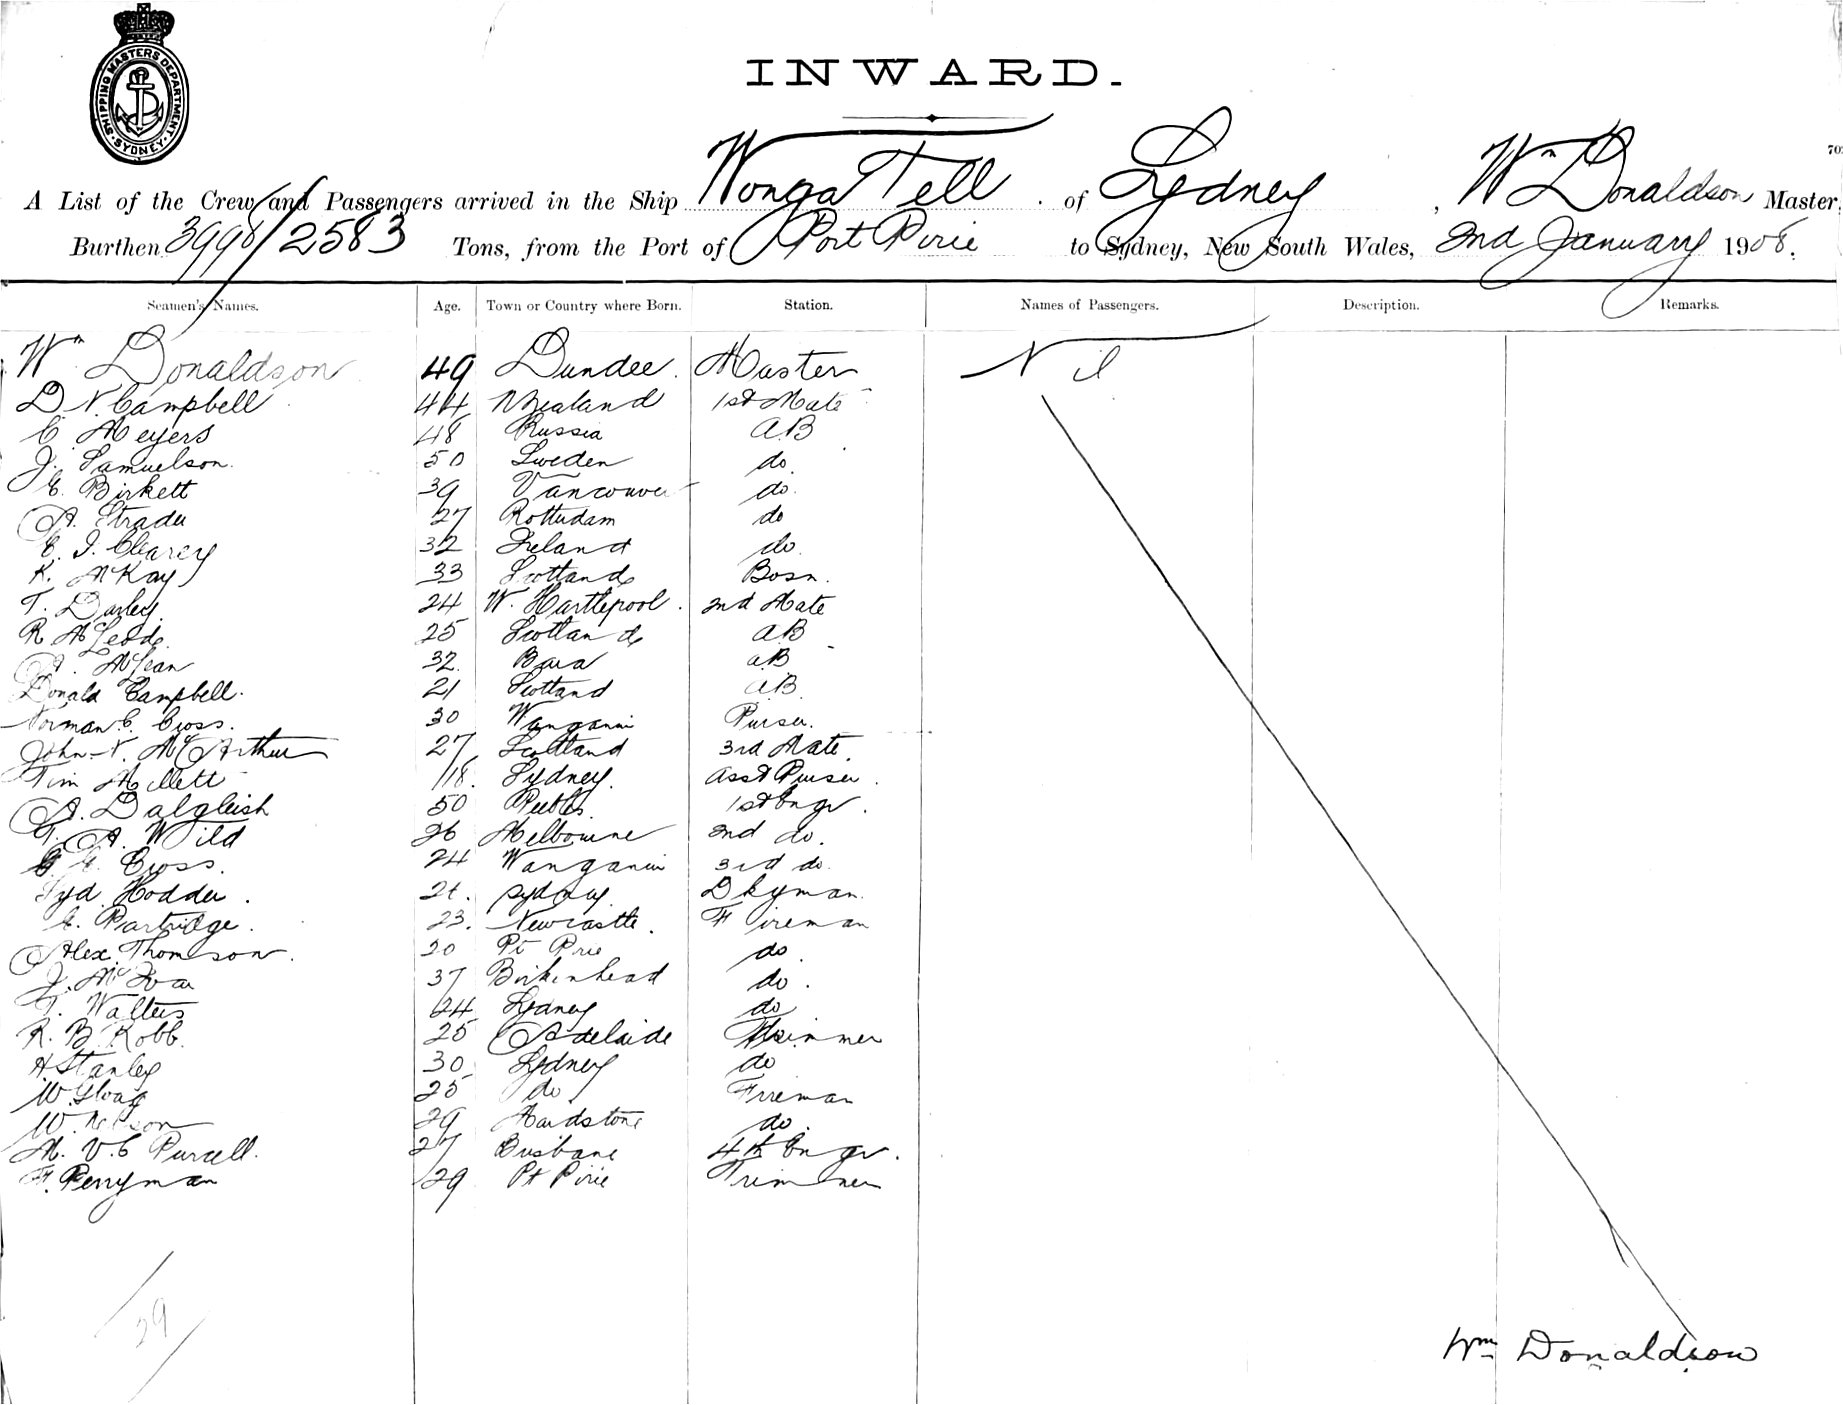 SHIPPING MASTERS DEPARTMENT · SYDNEY ·
INWARD.
A List of the Crew and Passengers arrived in the Ship Wonga Fell of Sydney, Wm Donaldson Master,
Burthen 3998/2583 Tons, from the Port of Port Pirie to Sydney, New South Wales, 2nd January 1908.
Seamen's Names. Age. Town or Country where Born. Station. Names of Passengers. Description. Remarks.
Wm Donaldson 49 Dundee. Master Nil
D. N. Campbell 44 N Zealand 1st Mate
C Meyers 48 Russia AB
J. Samuelson. 50 Sweden do.
E. Birkett 39 Vancouver do.
A. Strader 27 Rotterdam do
E. J. Clearey 32 Ireland do.
K. McKay 33 Scotland Bosn.
T. Darley 24 W. Hartlepool. 2nd Mate
R McLeod. 25 Scotland AB
A. McLean 32. Bara AB
Donald Campbell. 21 Scotland AB.
Norman C. Cross. 30 Wanganui Purser.
John N. McArthur 27 Scotland 3rd Mate.
Tim Millett 18. Sydney. Asst Purser.
A. Dalgleish 50 Peebles. 1st Engr.
T. A. Wild 26 Melbourne 2nd do.
E. Cross. 24 Wanganui 3rd do.
Syd Hodder. Sydney. Dkyman.
E. Partridge. 23. Newcastle. Fireman
Alex. Thomson. 20 Pt Pirie do.
J. McIvor 37 Birkenhead do.
T. Walters 24 Sydney do
R. B. Robb. 25 Adelaide Trimmer
H Stanley 30 Sydney do
W. Sloag 25 do Fireman
W. Nelson 29 Maidstone do.
M. V. C Purcell. 27 Brisbane 4th Engr.
F. Perryman 29 Pt Pirie Trimmer
29
Wm Donaldson